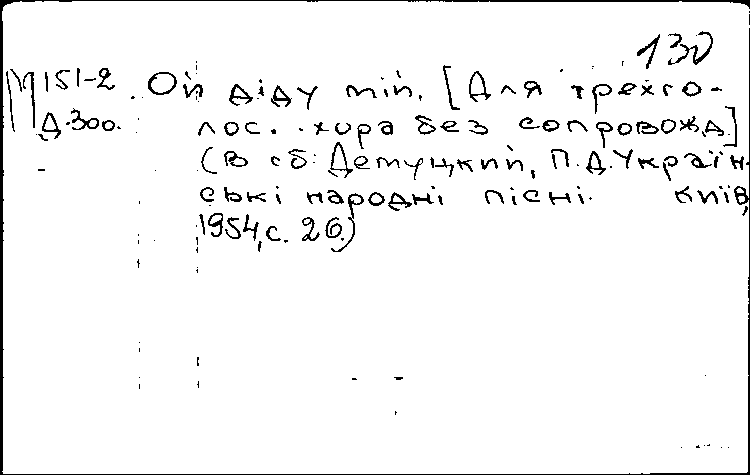 130
М 151-2 Ой діду мій. [Для трехго-
Д.300. лос. хора без сопровожд.]
(В сб: Демуцкий, П.Д. Україн-
ські народні пісні. Київ,
1954, с. 26.)